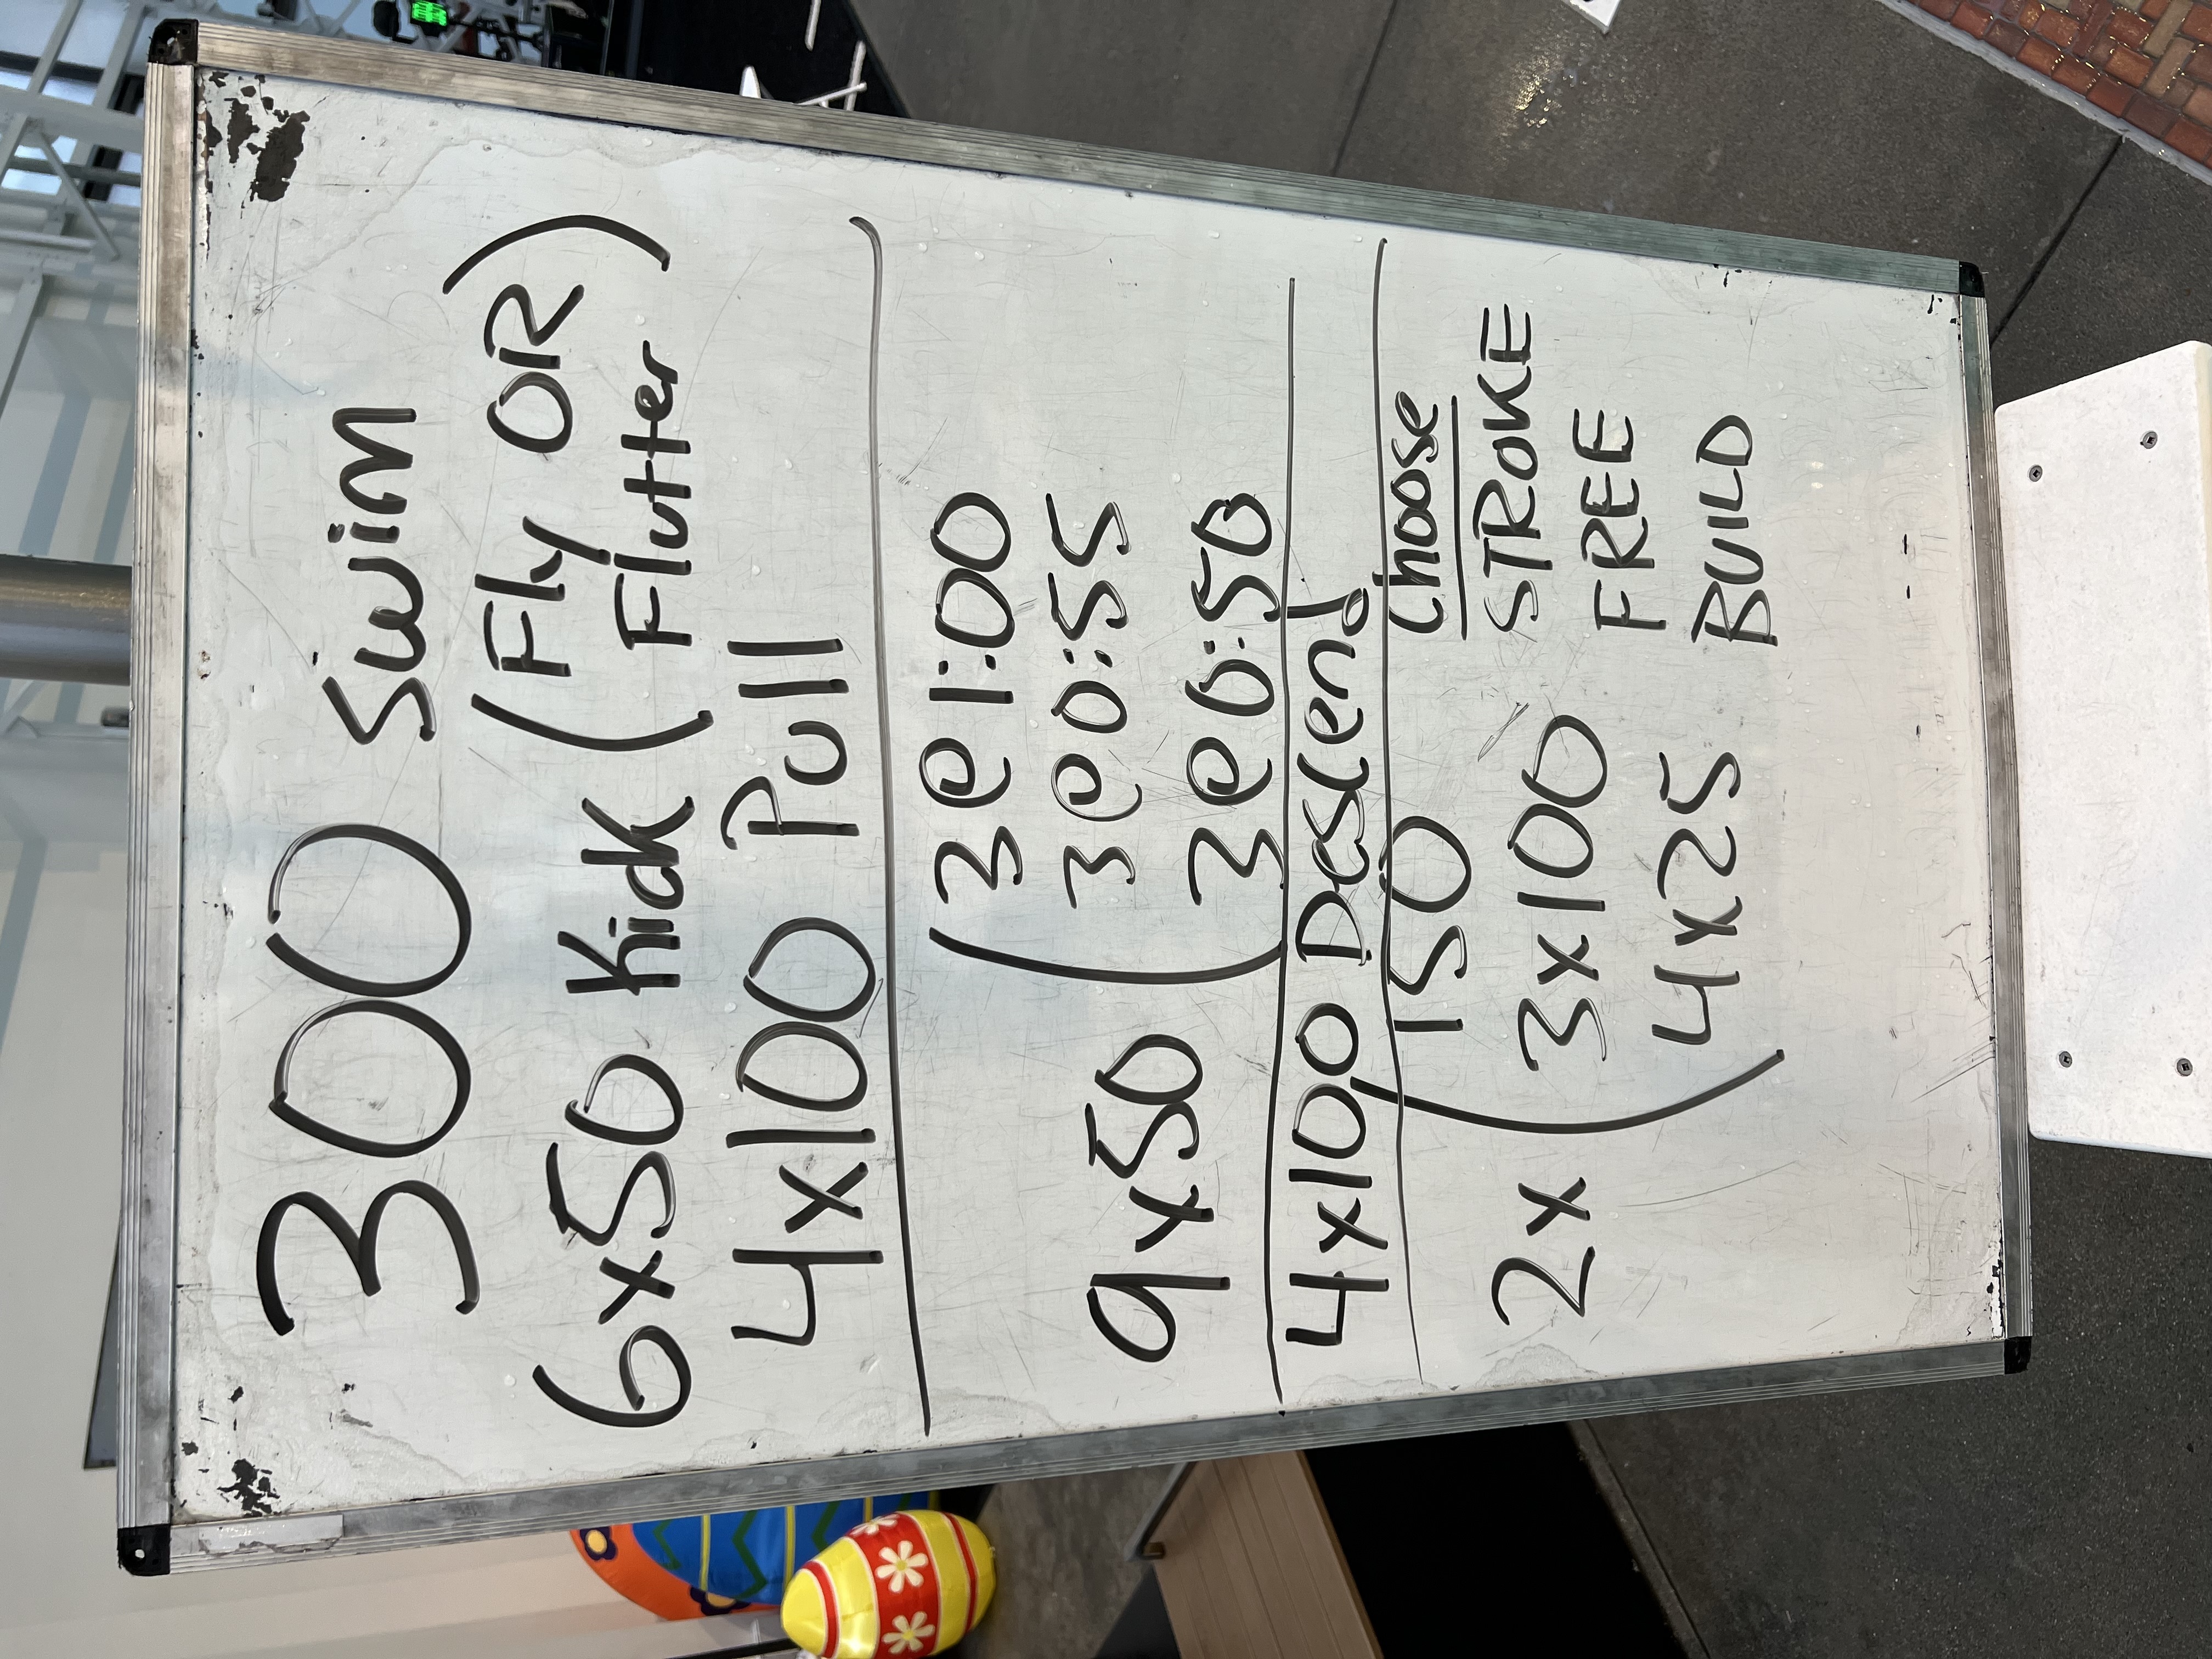 300 Swim
6x50 Kick (Fly OR)
Flutter
4x100 Pull
(3@1:00
3@0:55
9x50
3@0:50
4x100 Descend
150 choose
STROKE
2x (3x100 FREE
4x25 BUILD